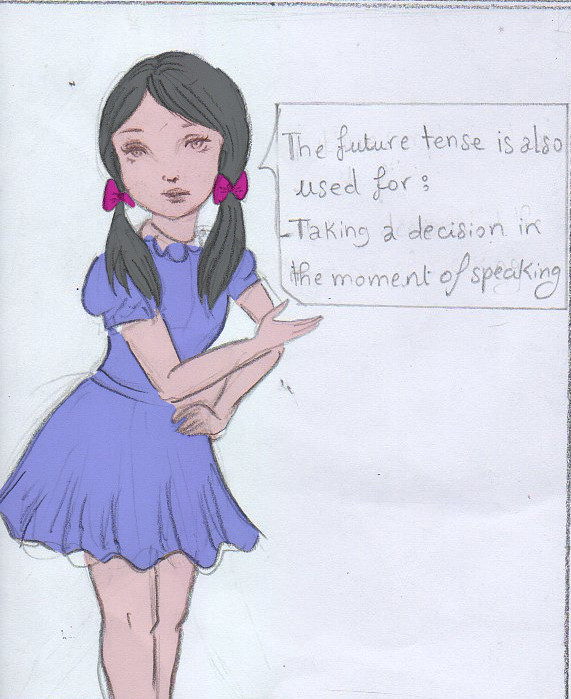 The future tense is also
used for:
-Taking a decision in
the moment of speaking